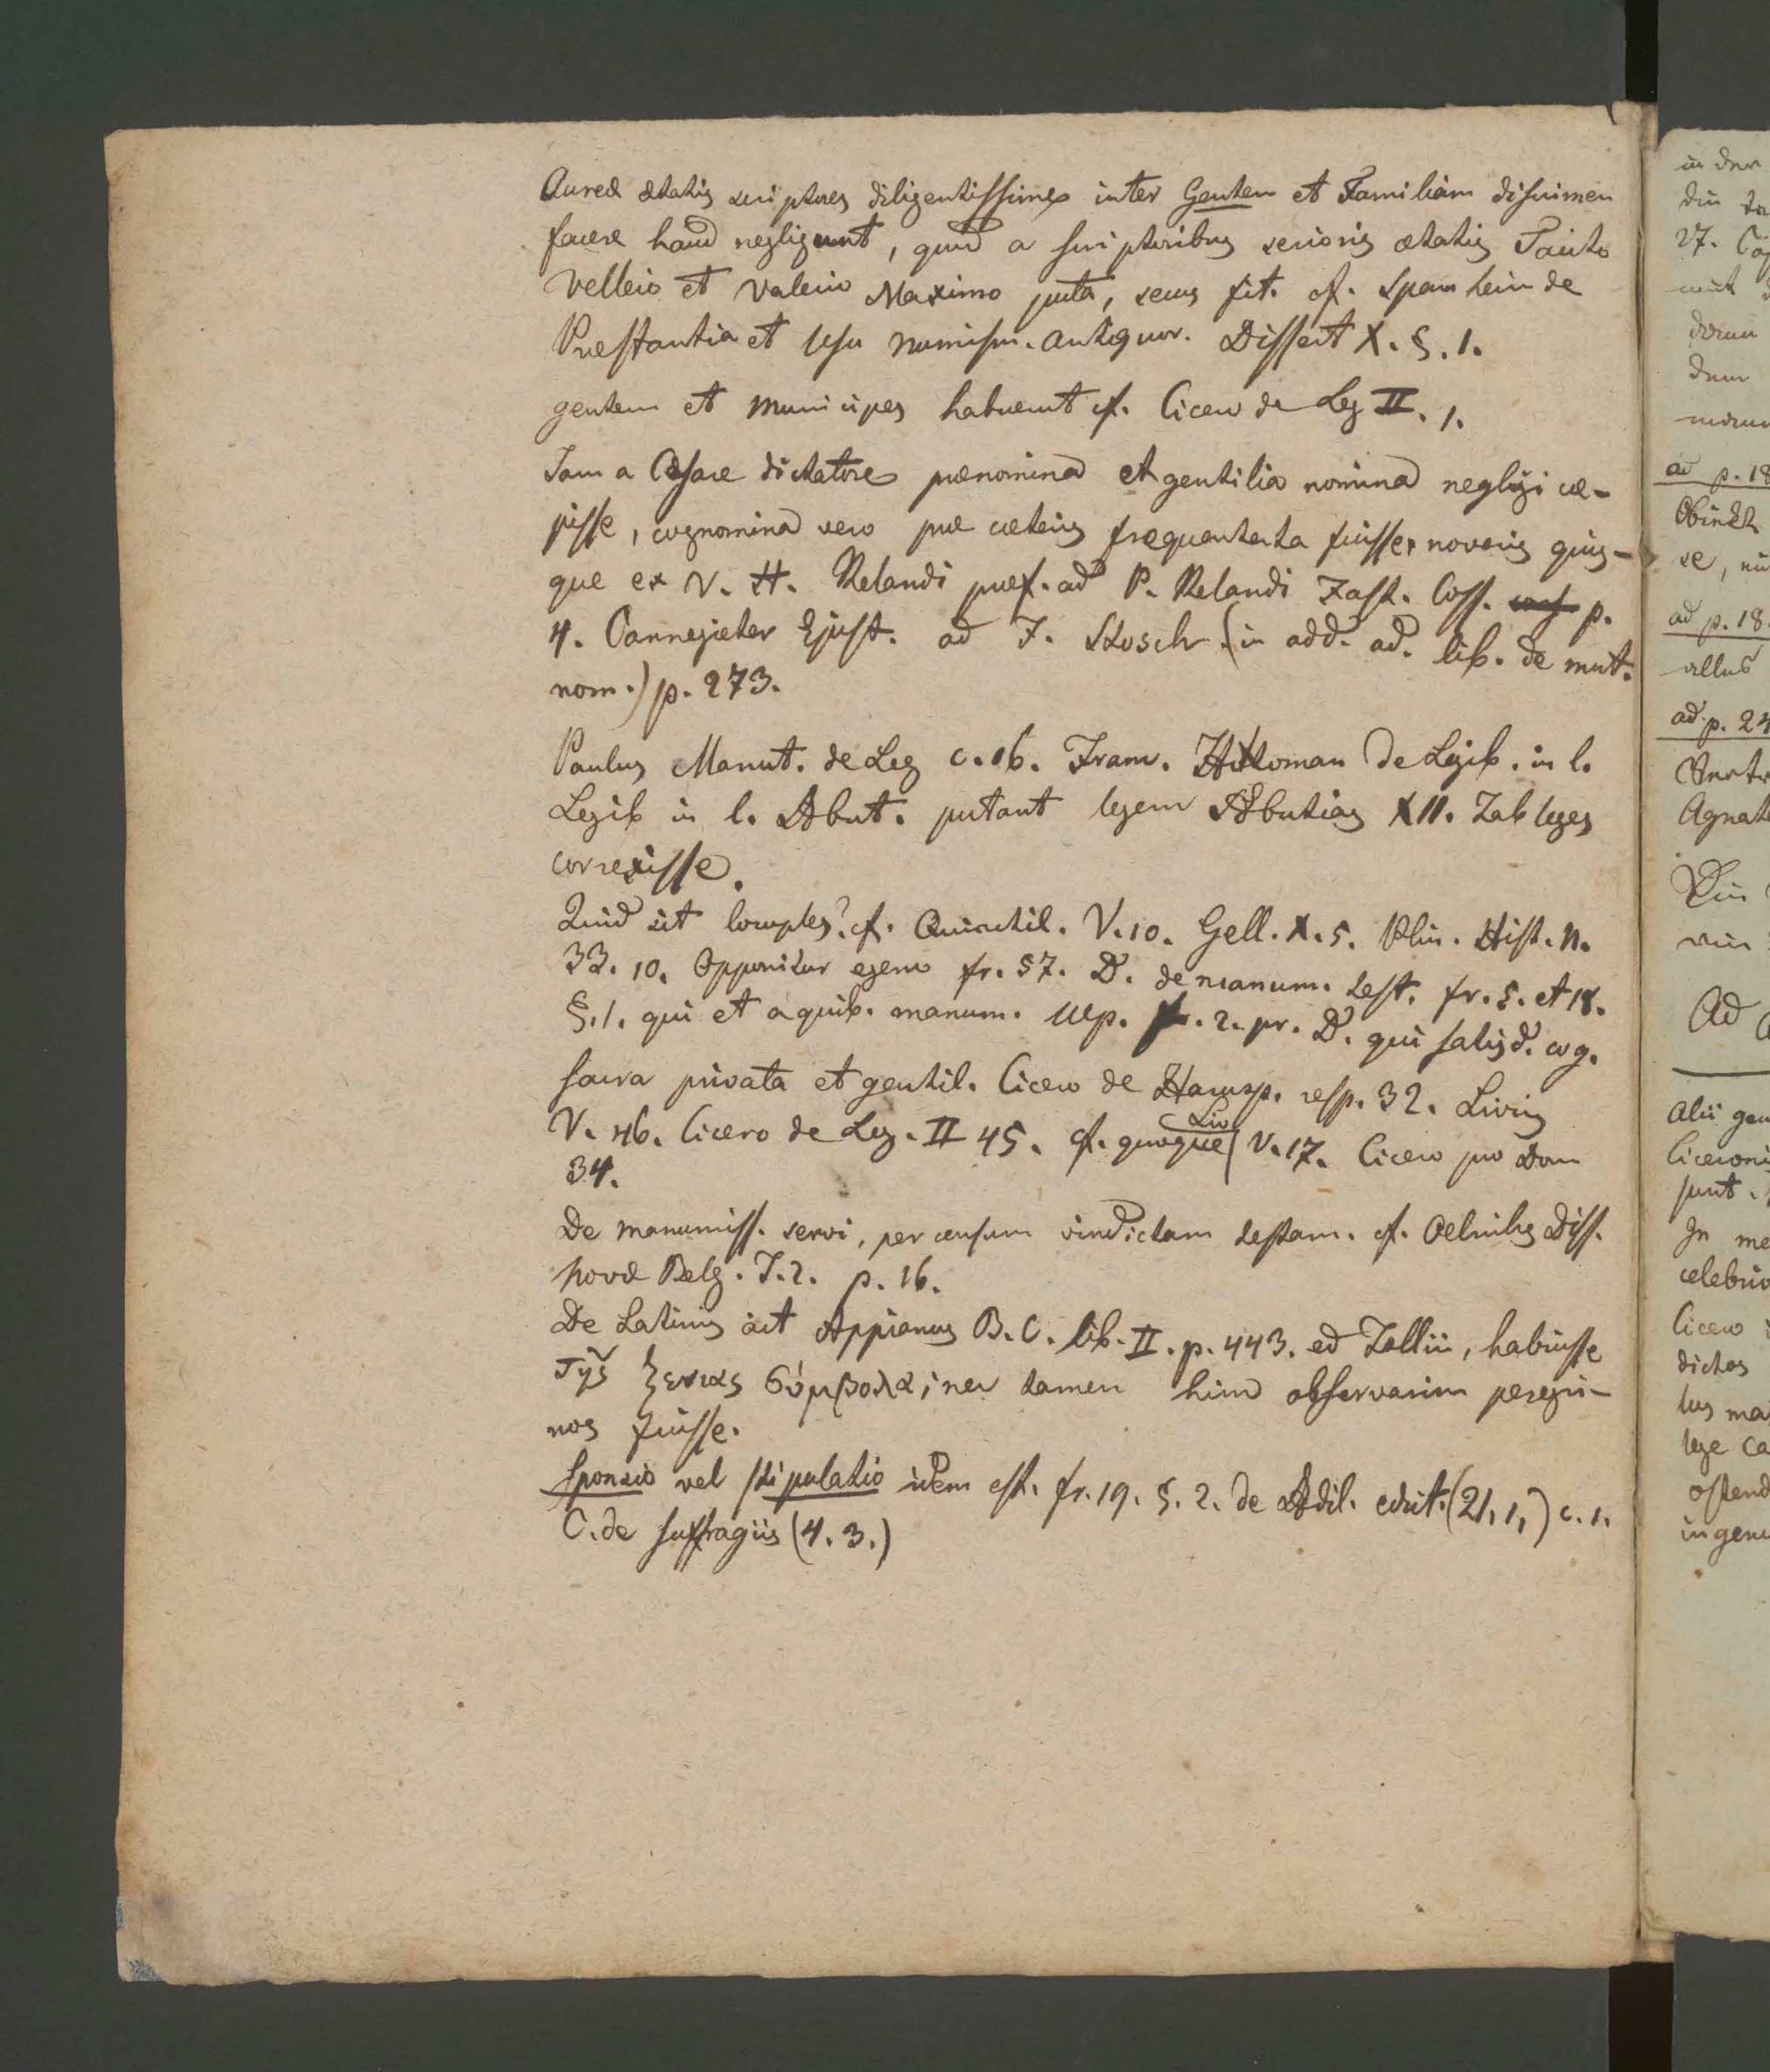 Aureæ ætatis scriptores diligentissime inter Gentem et Familiam discrimen
facere haud negligunt, quod a scriptoribus serioris ætatis Tacito
Velleio et Valerio Maximo puta, secus fit. cf. Spanheim de
Præstantia et usu numism. antiquor. Dissert X. §. 1.
gentem et municipes habuerunt cf. Cicero de Leg II. 1.
Jam a Cæsare dictatore prænomina et gentilia nomina negligi cœ-
pisse, cognomina vero præ cæteris frequentata fuisse, noveris quis-
que ex V. H. Relandi præf. ad P. Relandi Fast. Coss. p.
4. Cannegieter Epist. ad F. Stosch (in add. ad. lib. de mut.
nom.) p. 273.
Paulus Manut. de Leg c. 16. Franc. Hottoman de Legib. in l.
Legib in l. Æbut. putant legem Æbutias XII. Tab leges
correxisse.
Quid sit locuples? cf. Quinctil. V. 10. Gell. X. 5. Plin. Hist. N.
33. 10. Opponitur egeno fr. 57. D. de manum. test. fr. 5. et 18.
§. 1. qui et a quib. manum. Ulp. fr. 2. pr. D. qui satisd. cog.
sacra privata et gentil. Cicero de Harusp. resp. 32. Livius
V. 46. Cicero de Leg. II 45. cf. quoque Liv V. 17. Cicero pro Dom
34.
De manumiss. servi, per censum vindictam testam. cf. Oelrichs Diss.
novæ Belg. T. 2. p. 16.
De Latinis ait Appianus B. C. lib. II. p. 443. ed Tollii, habuisse
τῆς ξενιας σύμβολα; nec tamen hinc observarim peregri-
nos fuisse.
Sponsio vel stipulatio idem est. fr. 19. §. 2. de Ædil. edict. (21, 1,) c. 1.
C. de suffragiis (4. 3.)
in der
27. Caj
dem
ad p. 18
se,
ad p. 18.
ad. p. 24
Agnat
Ad
Alii gen
Ciceroni
sunt.
In me
celebri
Cicero
dictas
tus ma
lege Ca
ostend
ingenu